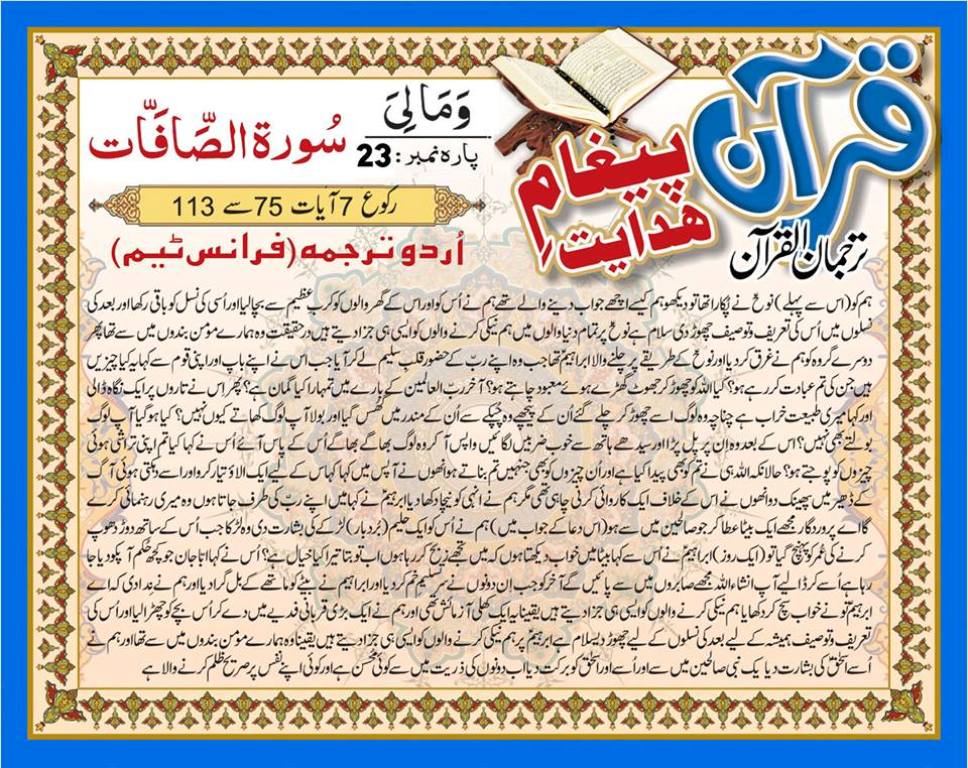 قرآن
پیغامِ
ھدایت
ترجمان القرآن
وَمَالِیَ
پارہ نمبر: 23
سُورۃ الصَّافَّات
رکوع 7 آیات 75 سے 113
اُردو ترجمہ (فرانس ٹیم)
ہم کو (اس سے پہلے) نوحؑ نے پکارا تھا تو دیکھو ہم کیسے اچھے جواب دینے والے تھے ہم نے اُس کو اور اس کے گھر والوں کو کربِ عظیم سے بچا لیا اور اُسی کی نسل کو باقی رکھا اور بعد کی
نسلوں میں اُس کی تعریف و توصیف چھوڑ دی سلام ہے نوحؑ پر تمام دنیا والوں میں ہم نیکی کرنے والوں کو ایسی ہی جزا دیتے ہیں درحقیقت وہ ہمارے مؤمن بندوں میں سے تھا پھر
دوسرے گروہ کو ہم نے غرق کر دیا اور نوحؑ کے طریقے پر چلنے والا ابراہیمؑ تھا جب وہ اپنے ربّ کے حضور قلبِ سلیم لے کر آیا جب اس نے اپنے باپ اور اپنی قوم سے کہا یہ کیا چیزیں
ہیں جن کی تم عبادت کر رہے ہو؟ کیا اللہ کو چھوڑ کر جھوٹ گھڑے ہوئے معبود چاہتے ہو؟ آخر ربّ العالمین کے بارے میں تمہارا کیا گمان ہے؟ پھر اس نے تاروں پر ایک نگاہ ڈالی
اور کہا میری طبیعت خراب ہے چنانچہ وہ لوگ اسے چھوڑ کر چلے گئے اُن کے پیچھے وہ چُپکے سے اُن کے مندر میں گھس گیا اور بولا آپ لوگ کھاتے کیوں نہیں؟ کیا ہو گیا آپ لوگ
بولتے بھی نہیں؟ اس کے بعد وہ ان پر پل پڑا اور سیدھے ہاتھ سے خوب ضربیں لگائیں واپس آ کر وہ لوگ بھاگے بھاگے اُس کے پاس آئے اُس نے کہا کیا تم اپنی تراشی ہوئی
چیزوں کو پوجتے ہو؟ حالانکہ اللہ ہی نے تم کو بھی پیدا کیا ہے اور اُن چیزوں کو بھی جنہیں تم بناتے ہو انھوں نے آپس میں کہا کہ اس کے لیے ایک الاؤ تیار کرو اور اسے دہکتی ہوئی آگ
کے ڈھیر میں پھینک دو انھوں نے اس کے خلاف ایک کاروائی کرنی چاہی تھی مگر ہم نے انہی کو نیچا دکھا دیا ابراہیمؑ نے کہا میں اپنے ربّ کی طرف جاتا ہوں وہ میری رہنمائی کرے
گا اے پروردگار مجھے ایک بیٹا عطا کر جو صالحین میں سے ہو (اس دعا کے جواب میں) ہم نے اُس کو ایک حلیم (بُردبار) لڑکے کی بشارت دی وہ لڑکا جب اُس کے ساتھ دوڑ دھوپ
کرنے کی عمر کو پہنچ گیا تو (ایک روز) ابراہیمؑ نے اُس سے کہا بیٹا میں خواب دیکھتا ہوں کہ میں تجھے ذبح کر رہا ہوں اب تو بتا تیرا کیا خیال ہے؟ اُس نے کہا ابّا جان جو کچھ حُکم آپکو دیا جا
رہا ہے اُسے کر ڈالیے آپ انشاءاللہ مجھے صابروں میں سے پائیں گے آخر کو جب اِن دونوں نے سر تسلیم خم کر دیا اور ابراہیمؑ نے بیٹے کو ماتھے کے بل گرا دیا اور ہم نے ندا دی کہ اے
ابراہیمؑ تو نے خواب سچ کر دکھایا ہم نیکی کرنے والوں کو ایسی ہی جزا دیتے ہیں یقینا یہ ایک کھلی آزمائش تھی اور ہم نے ایک بڑی قربانی فدیے میں دے کر اُس بچے کو چھڑا لیا اور اُس کی
تعریف و توصیف ہمیشہ کے لیے بعد کی نسلوں کے لیے چھوڑ دی سلام ہے ابراہیمؑ پر ہم نیکی کرنے والوں کو ایسی ہی جزا دیتے ہیں یقینا وہ ہمارے مؤمن بندوں میں سے تھا اور ہم نے
اُسے اسحٰقؑ کی بشارت دی ایک نبی صالحین میں سے اور اُسے اور اسحٰقؑ کو برکت دی اب دونوں کی ذریت میں سے کوئی محسن ہے اور کوئی اپنے نفس پر صریح ظلم کرنے والا ہے